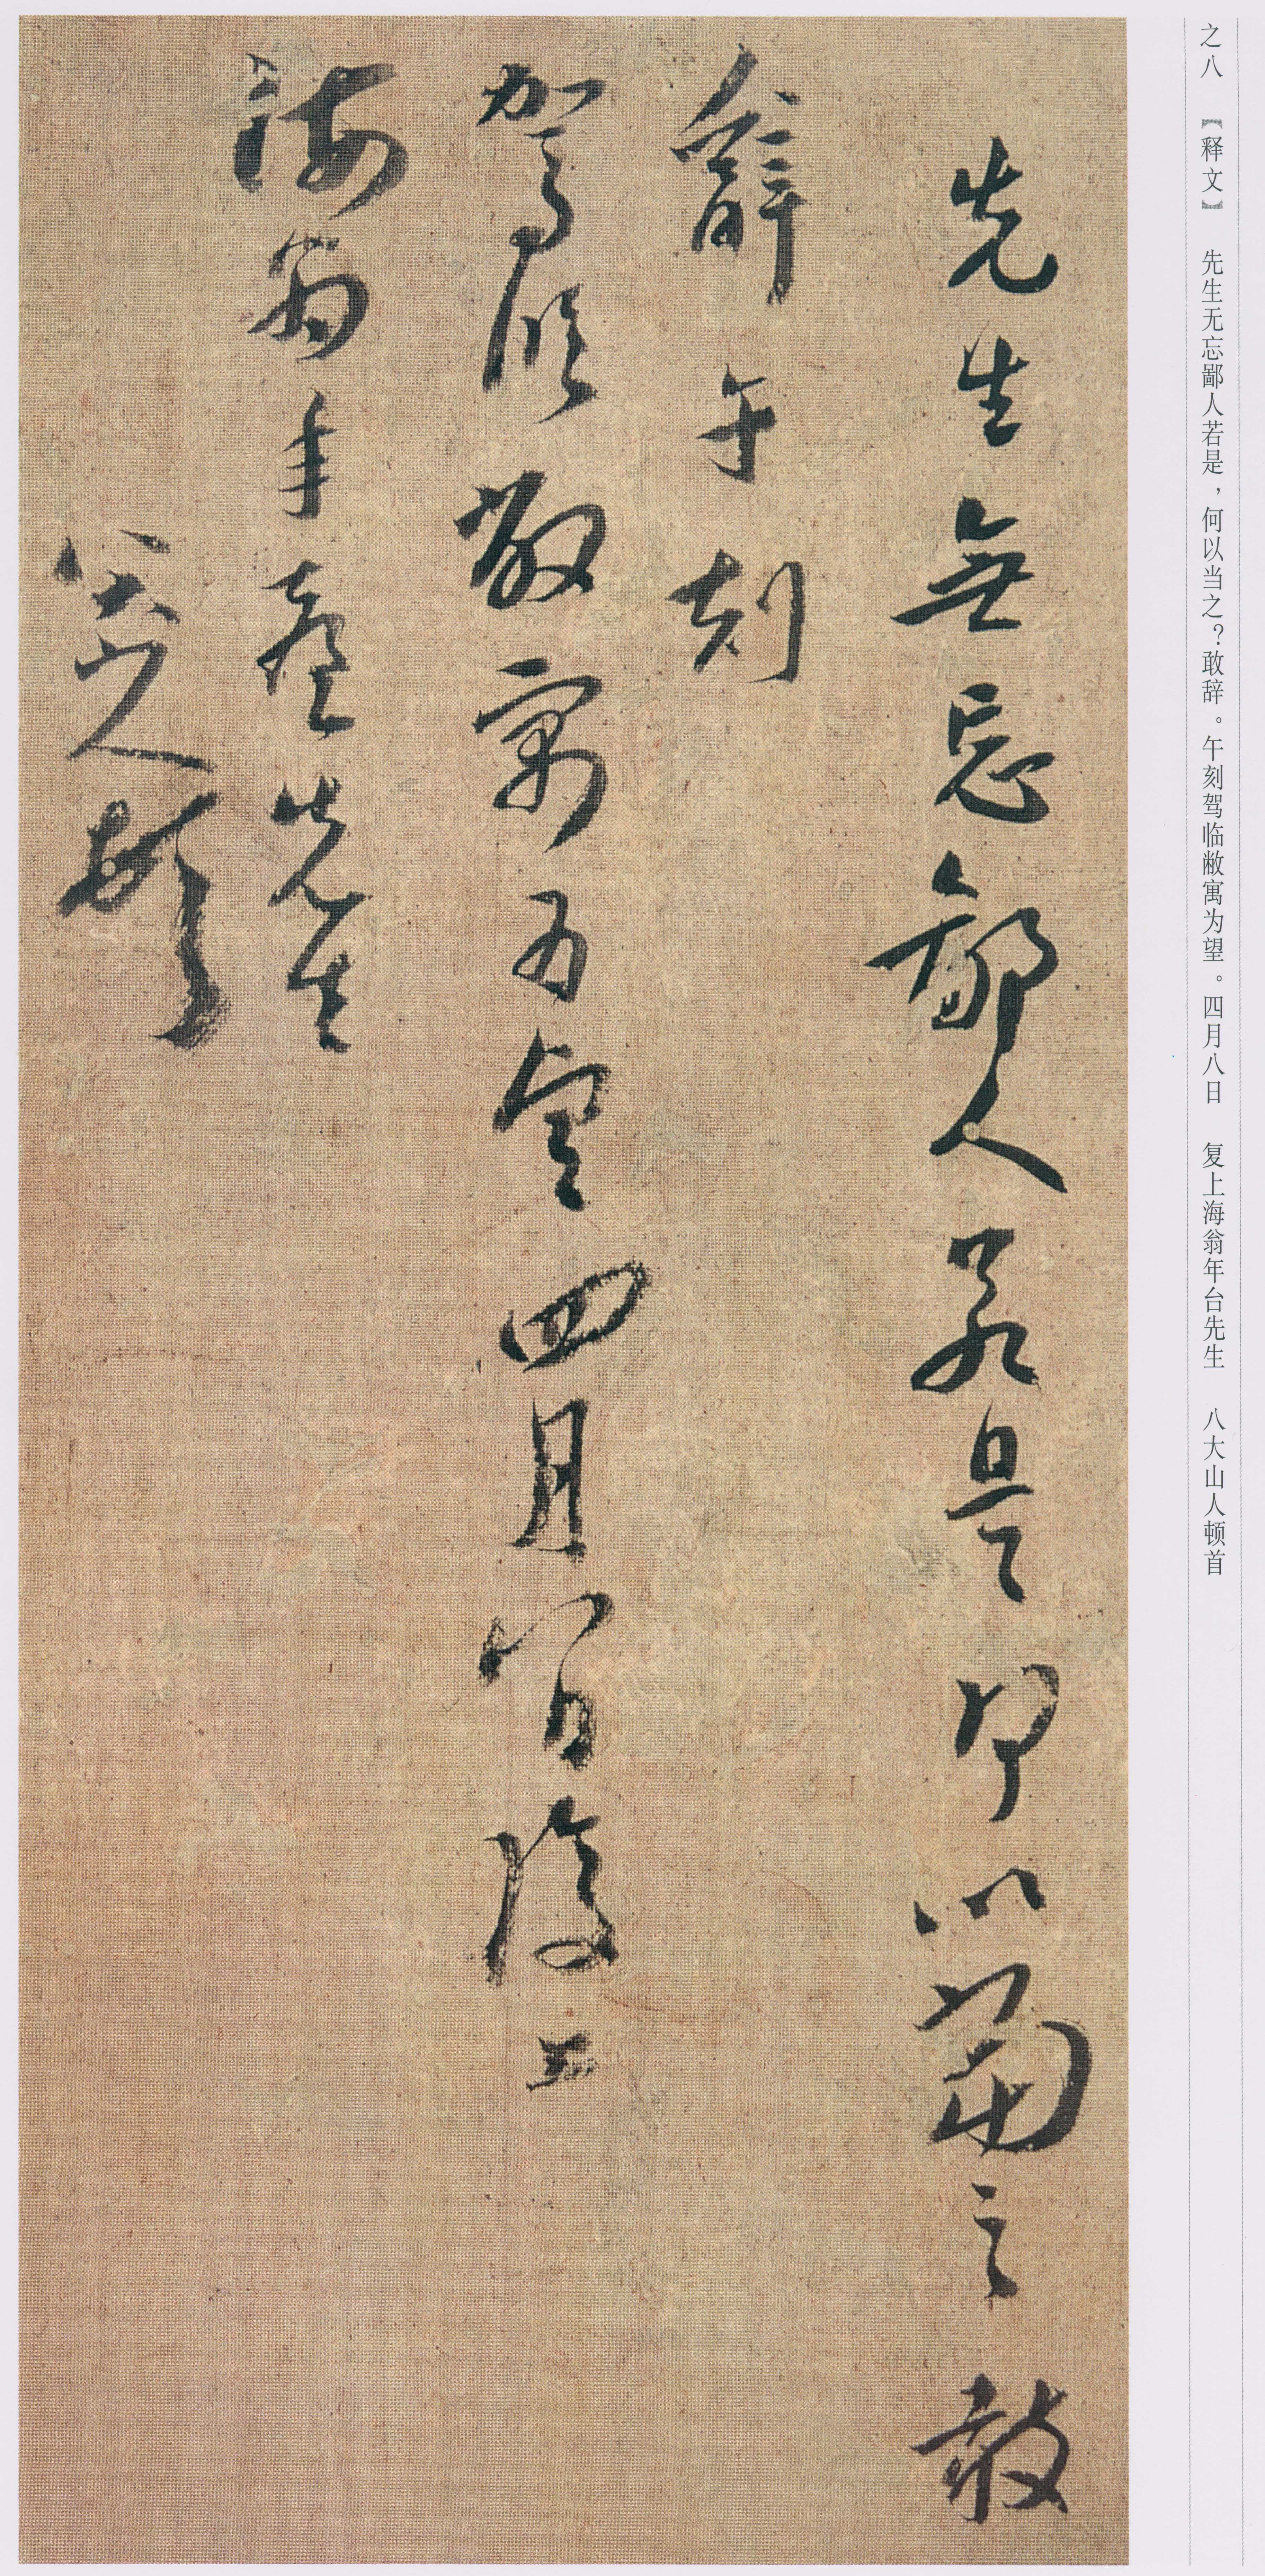 之八 【释文】 先生无忘鄙人若是，何以当之？敢辞。午刻驾临敝寓为望。四月八日 复上海翁年台先生 八大山人顿首
先生無忘鄙人若是何以當之敢
辭午刻
駕临敝寓为望四月八日復上
海翁年臺先生
八大山人頓首